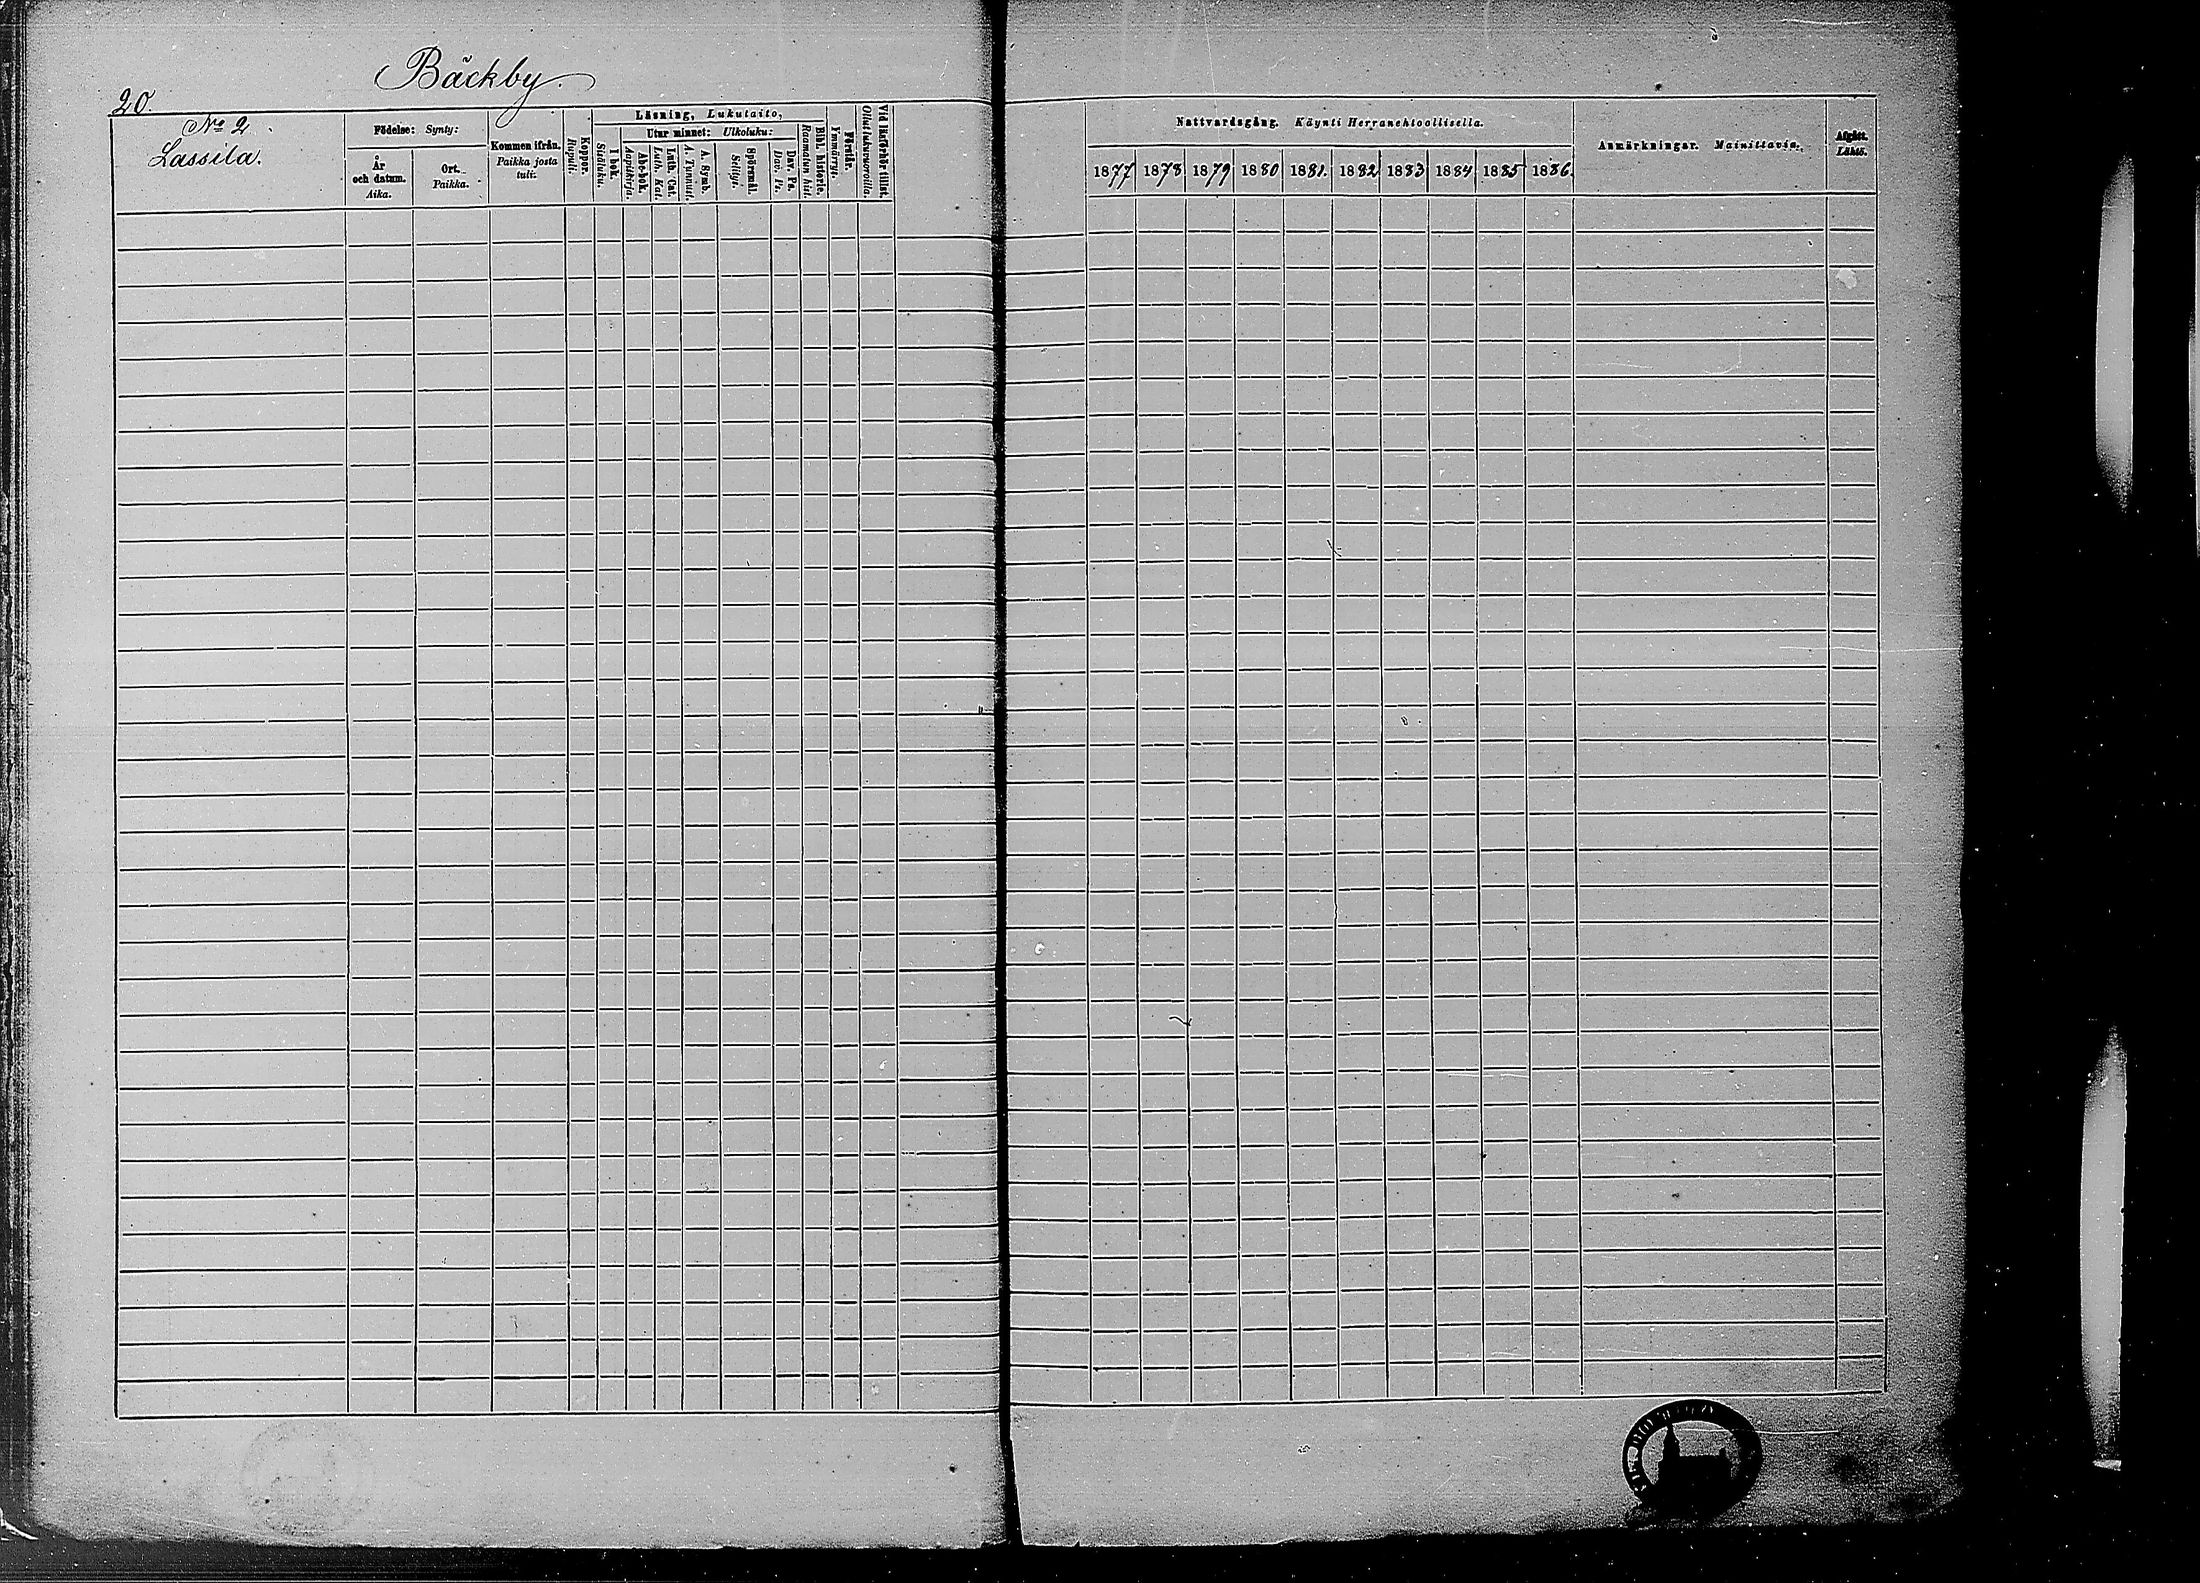 Bäckby.
20.
No 2
Lassila.
Födelse: Synty:
År
och datum.
Aika.
Ort.
Paikka.
Kommen ifrån.
Paikka josta
tuli.
Koppor.
Rupuli.
Läsning, Lukutaito,
I bok.
Sisäluku.
Utur minnet: Ulkoluku:
Abc-bok.
Aapiskirja.
Luth. Cat.
Luth. Kat.
A. Symb.
A. Tunnust.
Spörsmål.
Selitys.
Dav. Ps.
Dav. Ps.
Bibl. historie.
Raamatun hist.
Förstår.
Ymmärrys.
Vid läseförhör tillst.
Ollut lukuvuoroilla.
Nattvardsgång. Käynti Herranehtoollisella.
1877 1878 1879 1880 1881. 1882 1883 1884 1885 1886.
Anmärkningar. Mainittavia.
Afgått.
Lähtö.